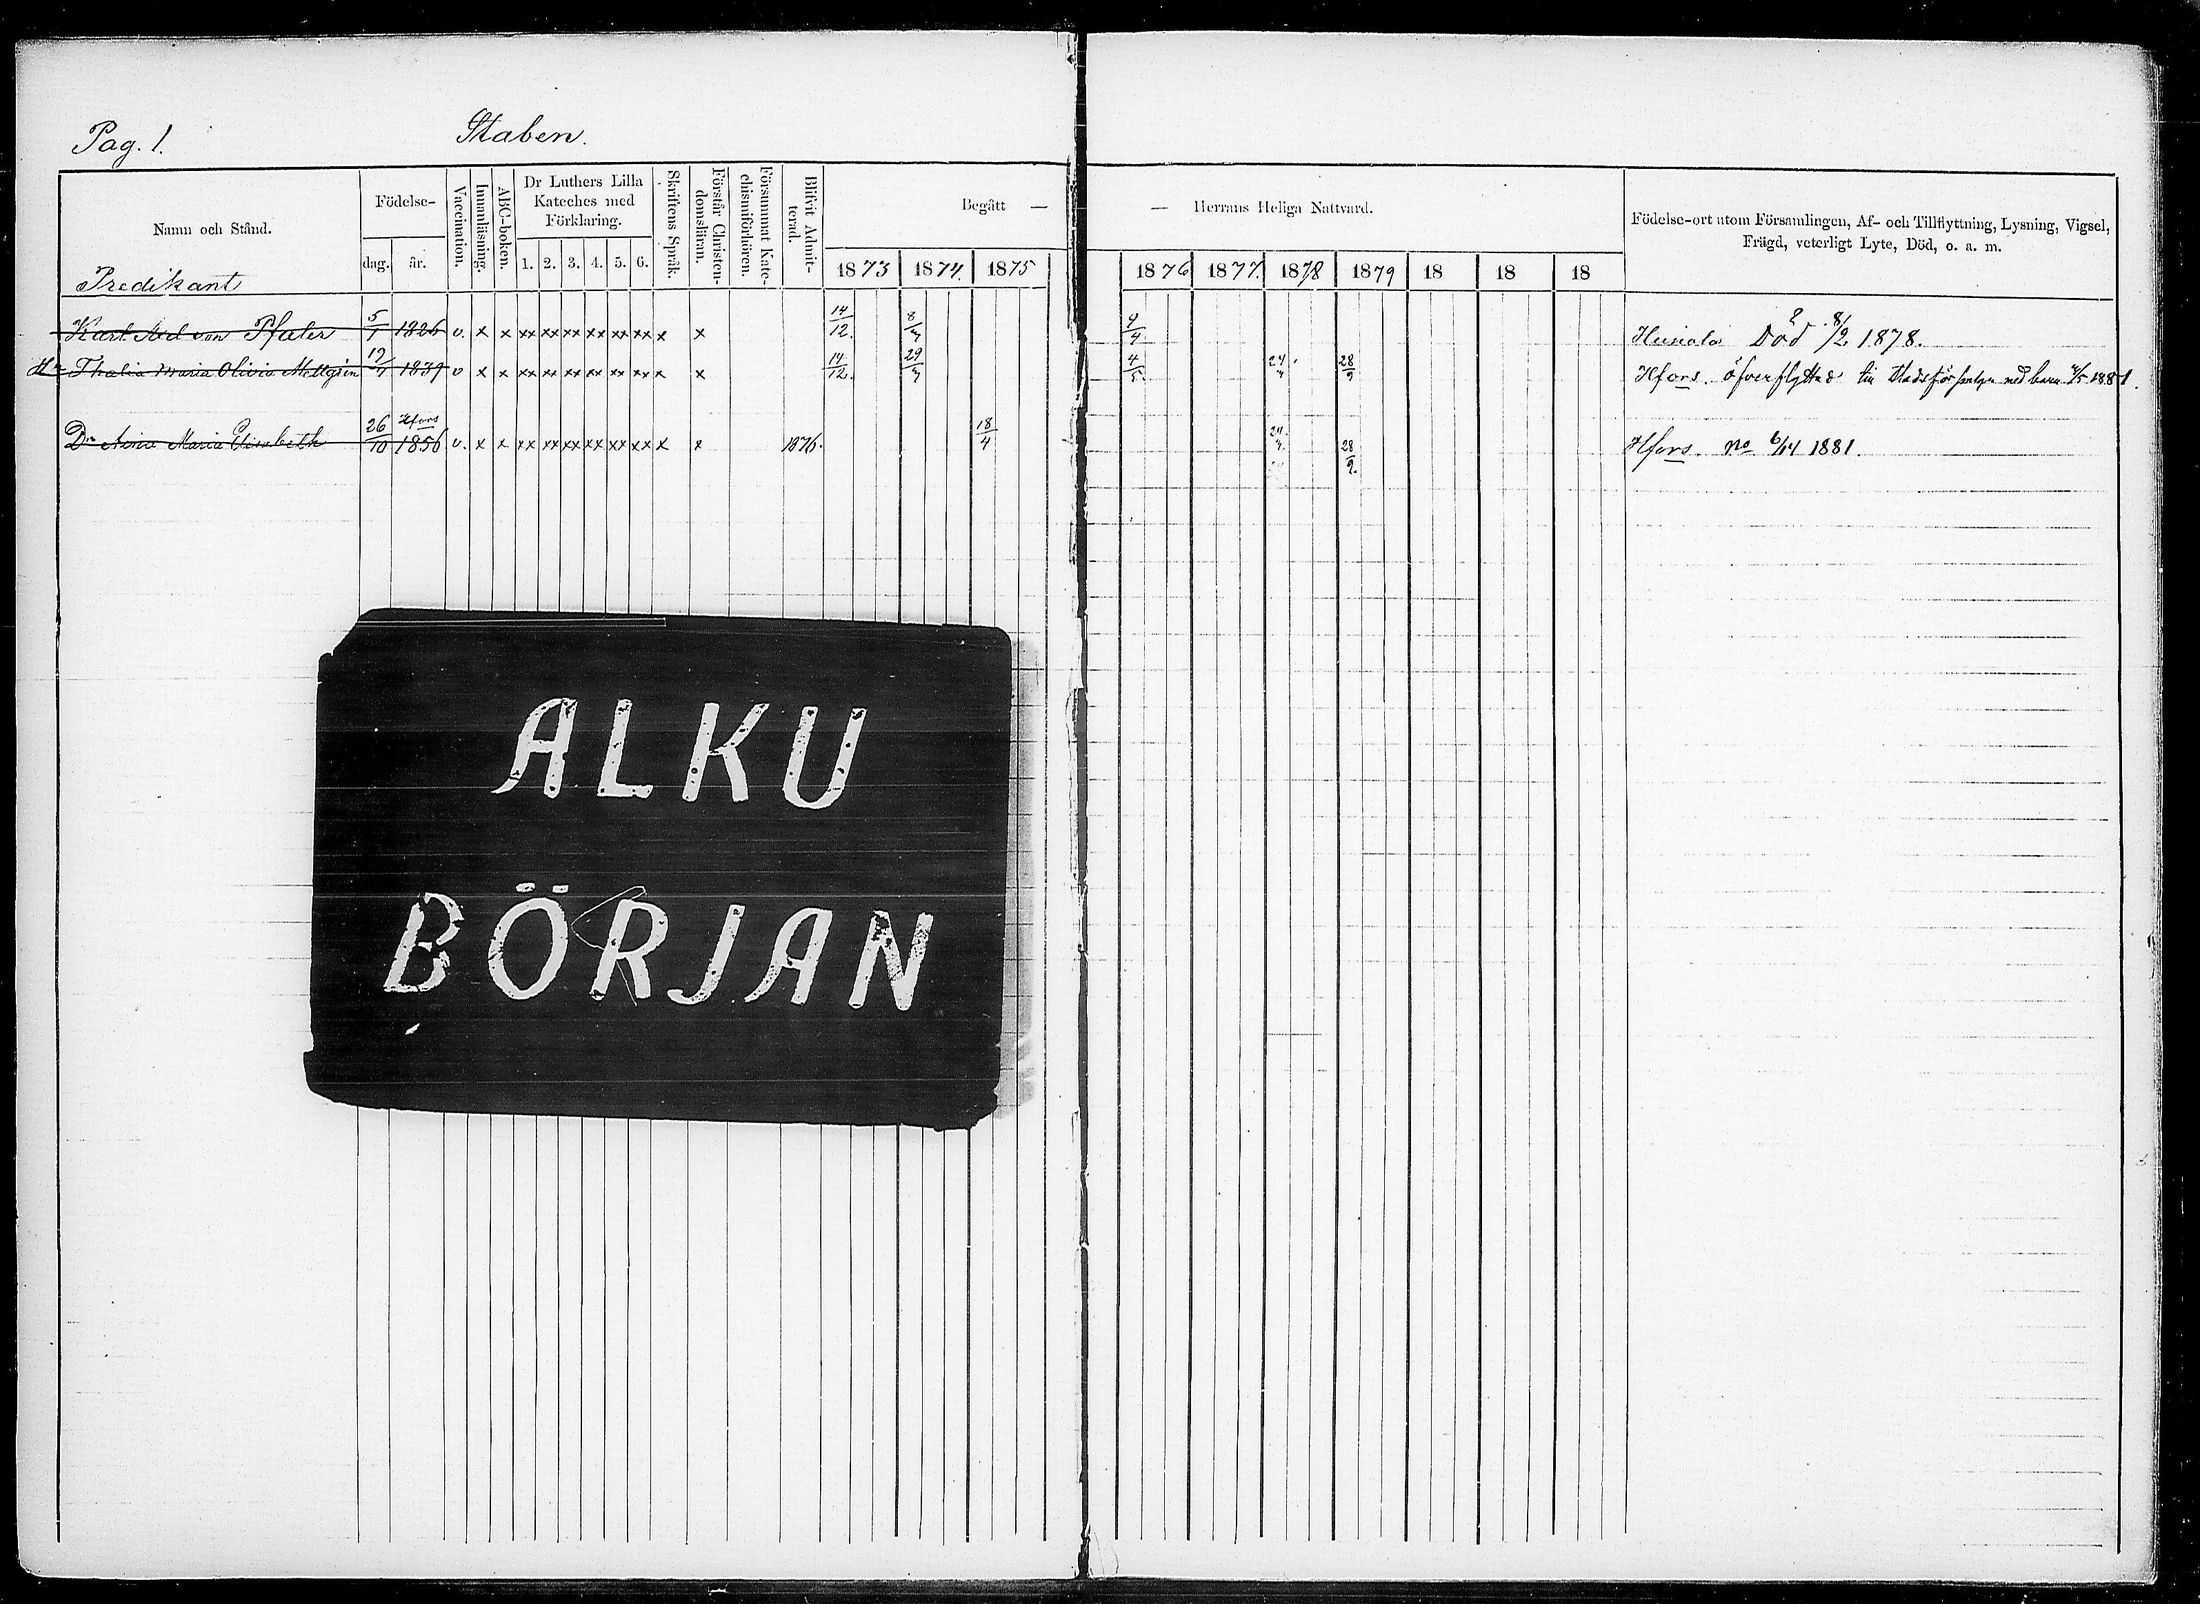 Pag. 1. Staben.
Namn och Stånd. Födelse- dag. år. Vaccination. Innanläsning. ABC-boken. Dr Luthers Lilla Kateches med Förklaring. 1. 2. 3. 4. 5. 6. Skriftens Språk. Förstår Christendomsläran. Försummat Katechismiförhören. Blifvit Admitterad. Begått — — Herrans Heliga Nattvard. Födelse-ort utom Församlingen, Af- och Tillflyttning, Lysning, Vigsel, Frägd, veterligt Lyte, Död, o. a. m.
1873 1874. 1875 1876 1877. 1878 1879 18 18 18
Predikant
Karl Axel von Pfaler 5/1 1826 v. x x xx xx xx xx xx xx x x 14/12. 8/4 Heinola Död 8/2 1878.
Thalia Maria Olivia Mellgrén 1839 v x x xx xx xx xx xx xx x x 14/12. 29/4 4/5. 28/9 Hfors. öfverflyttad till Stadsförsamlgn med barn 1881.
Hfors
Maria Elisabeth 26/10 1856 v. x x xx xx xx xx xx xx x x 1876. 18/4 28/9. Hfors. No 6/14 1881.
ALKU
BÖRJAN